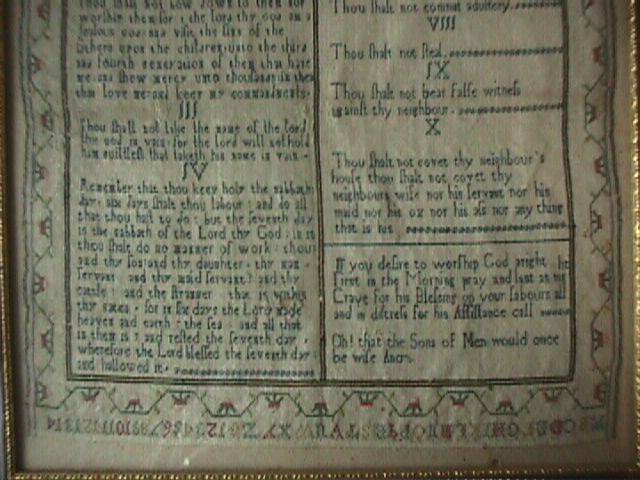 thou shalt not bow down to them nor
worship them for I the lord thy god am a
jealous god and visit the sins of the
fathers upon the children unto the third
and fourth generation of them that hate
me and shew mercy unto thousands in them
that love me and keep my commandments
III
Thou shalt not take the name of the lord
thy god in vain for the lord will not hold
him guiltless that taketh his name in vain
IV
Remember that thou keep holy the sabbath
day six days shalt thou labour and do all
that thou hast to do but the seventh day
is the sabbath of the Lord thy God in it
thou shalt do no manner of work thou
and thy son and thy daughter thy man
servant and thy maid servant and thy
cattle and the stranger that is within
thy gates for in six days the Lord made
heaven and earth the sea and all that
in them is and rested the seventh day
wherefore the Lord blessed the seventh day
and hallowed it
Thou shalt not commit adultery
VIII
Thou shalt not steal
IX
Thou shalt not bear false witness
against thy neighbour
X
Thou shalt not covet thy neighbour's
house thou shalt not covet thy
neighbours wife nor his servant nor his
maid nor his ox nor his ass nor any thing
that is his
If you desire to worship God aright
First in the Morning pray and last at nig
Crave for his Blessing on your labours all
and in distress for his Assistance call
Oh! that the Sons of Men would once
be wise